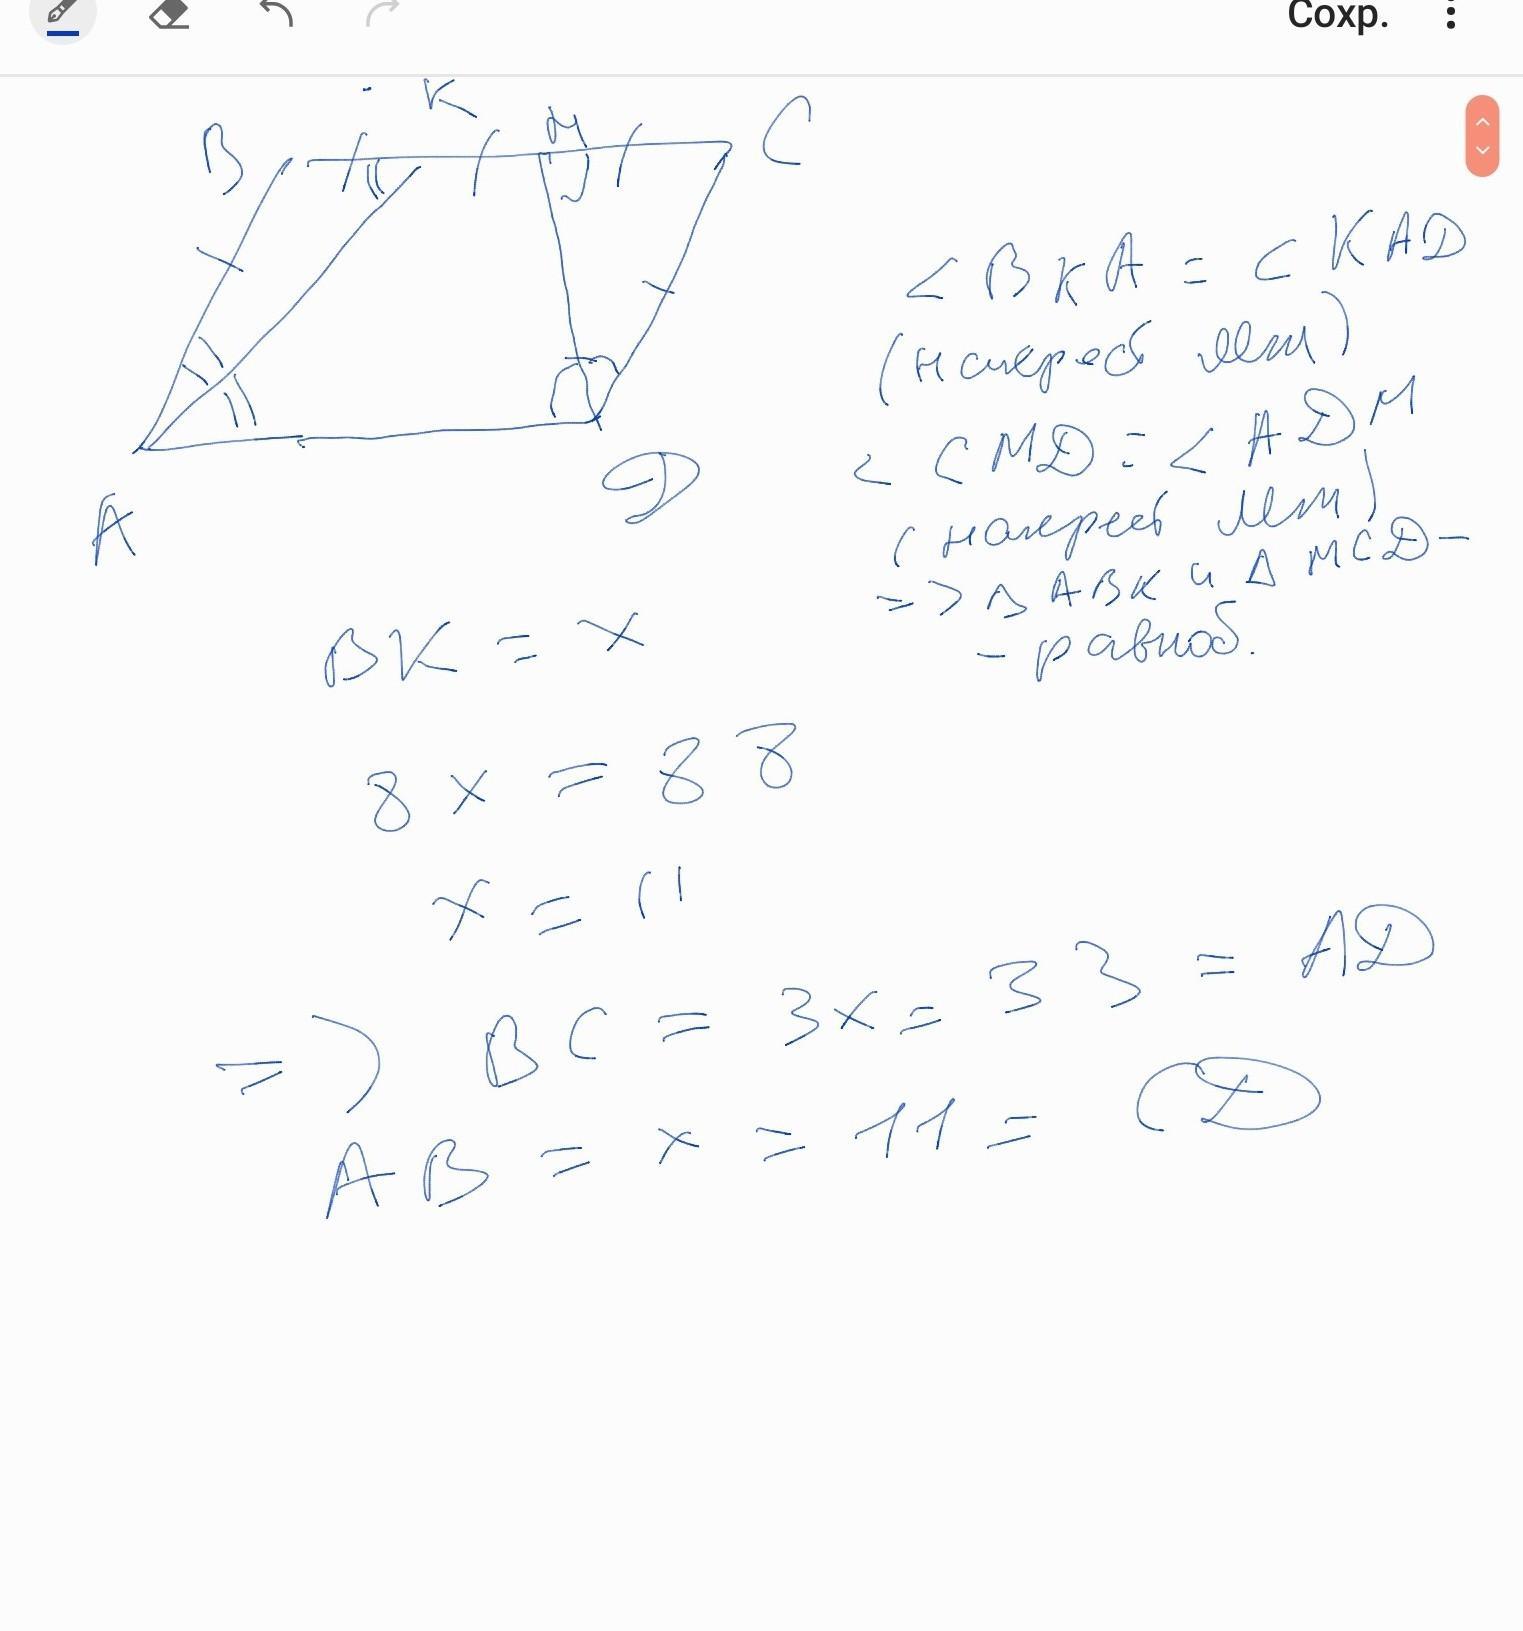 Сохр.
K
B
M
C
A
D
∠BKA = ∠KAD
(накрест леж)
∠CMD = ∠ADM
(накрест леж)
=> Δ ABK и Δ MCD -
- равноб.
BK = x
8x = 88
x = 11
=> BC = 3x = 33 = AD
AB = x = 11 = CD